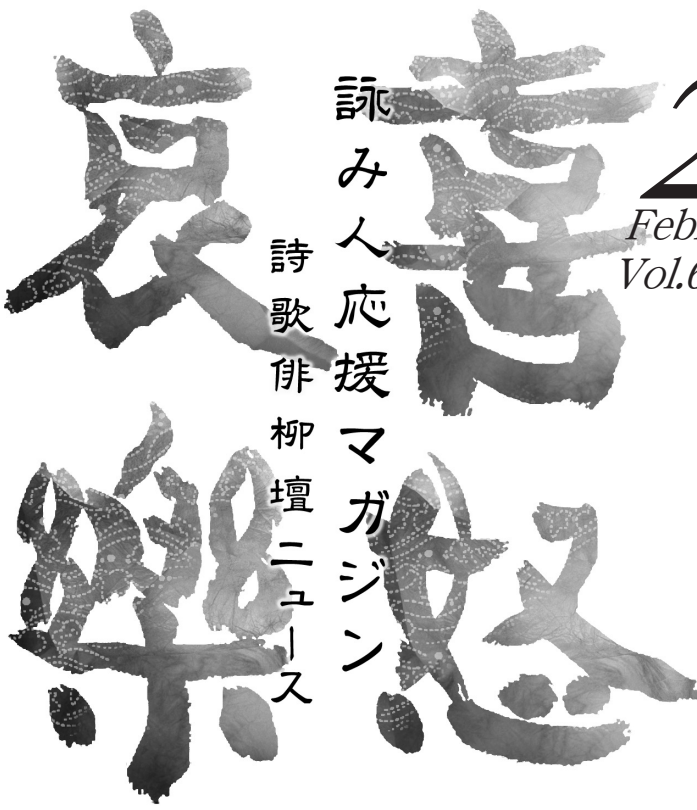 喜怒
哀樂
詠み人応援マガジン
詩歌俳柳壇ニュース
2
Feb
Vol.6